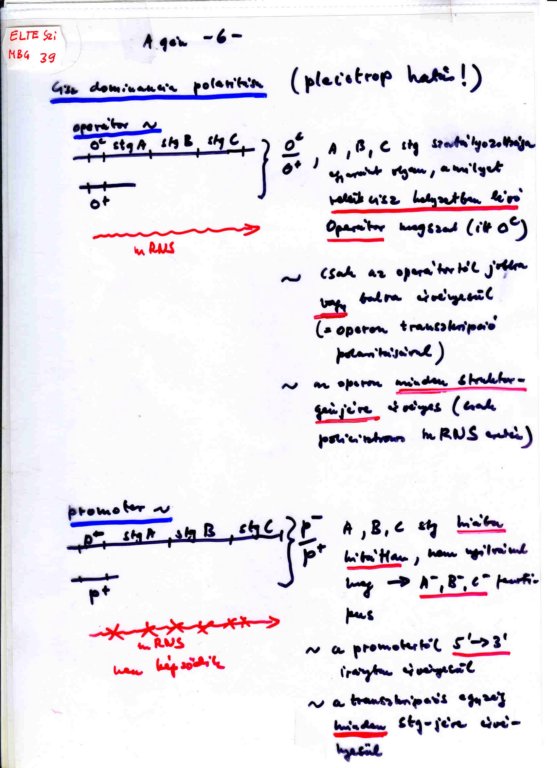 ELTE Szi
MBG 39
A gén -6-
Cisz dominancia polaritása (pleiotrop hatás!)
operátor ~
O^c stg A stg B stg C
O+
mRNS
O^c/O+, A, B, C stg szabályozottsága
egyaránt olyan, amilyet
velük cisz helyzetben lévő
Operátor megszab (itt O^c)
~ csak az operátortól jobbra
vagy balra érvényesül
(= operon transzkripció
polaritásával)
~ az operon minden struktur-
génjére érvényes (csak
policisztronos mRNS esetén)
promoter ~
p- stg A stg B stg C
p+
mRNS
nem képződik
p-/p+ A, B, C stg hiába
hibátlan, nem nyilvánul
meg → A-, B-, C- fenotí-
pus
~ a promotertől 5'→3'
irányban érvényesül
~ a transzkripciós egység
minden stg-jére érvé-
nyesül